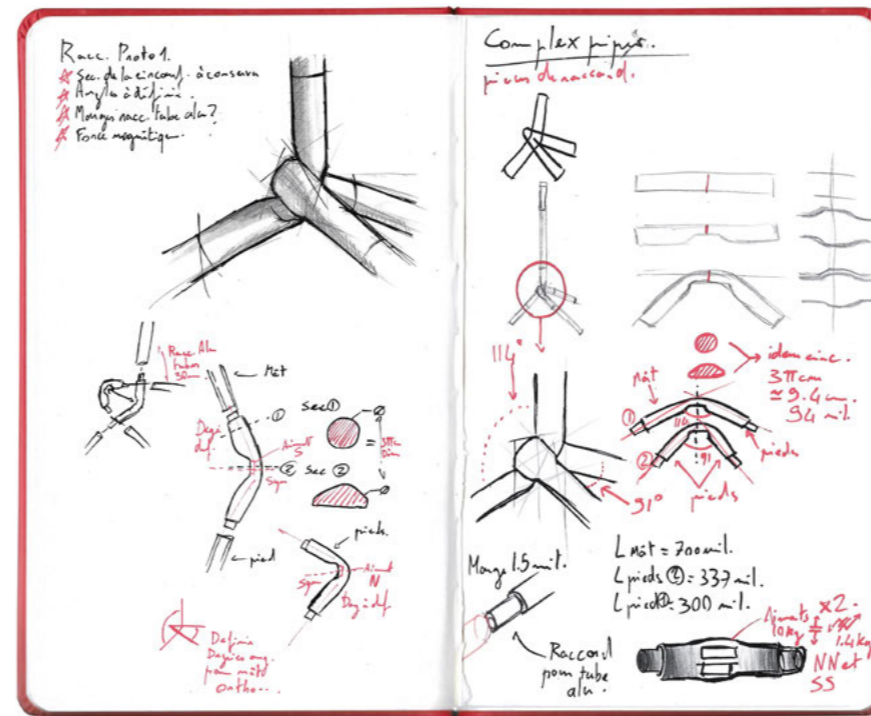 Racc. Proto 1.
Sec. de la circonf. à conserver
Angles à définir.
Manges racc. tube alu?
Force magnétique.
Racc. Alu
tubes
30mm
Mât
Deg à
def.
①
Sec ①
Aimant
S
② Sec ②
Sym
= 3πcm
Diam
pied
pieds.
Sym
Aimant
N
Deg à def.
Définir
Degrés ang.
pour mât
ortho...
Complex pipes.
pièces de raccord.
114°
91°
idem circ.
3πcm
≃ 9.4 cm.
94 mil.
Mât
①
114
pieds
②
91
pieds
Mange 1.5 mil.
Raccord
pour tube
alu.
L Mât = 700 mil.
L pieds ② = 337 mil.
L pied ① = 300 mil.
Aimants x2.
10kg
1.4kg
NN et
SS